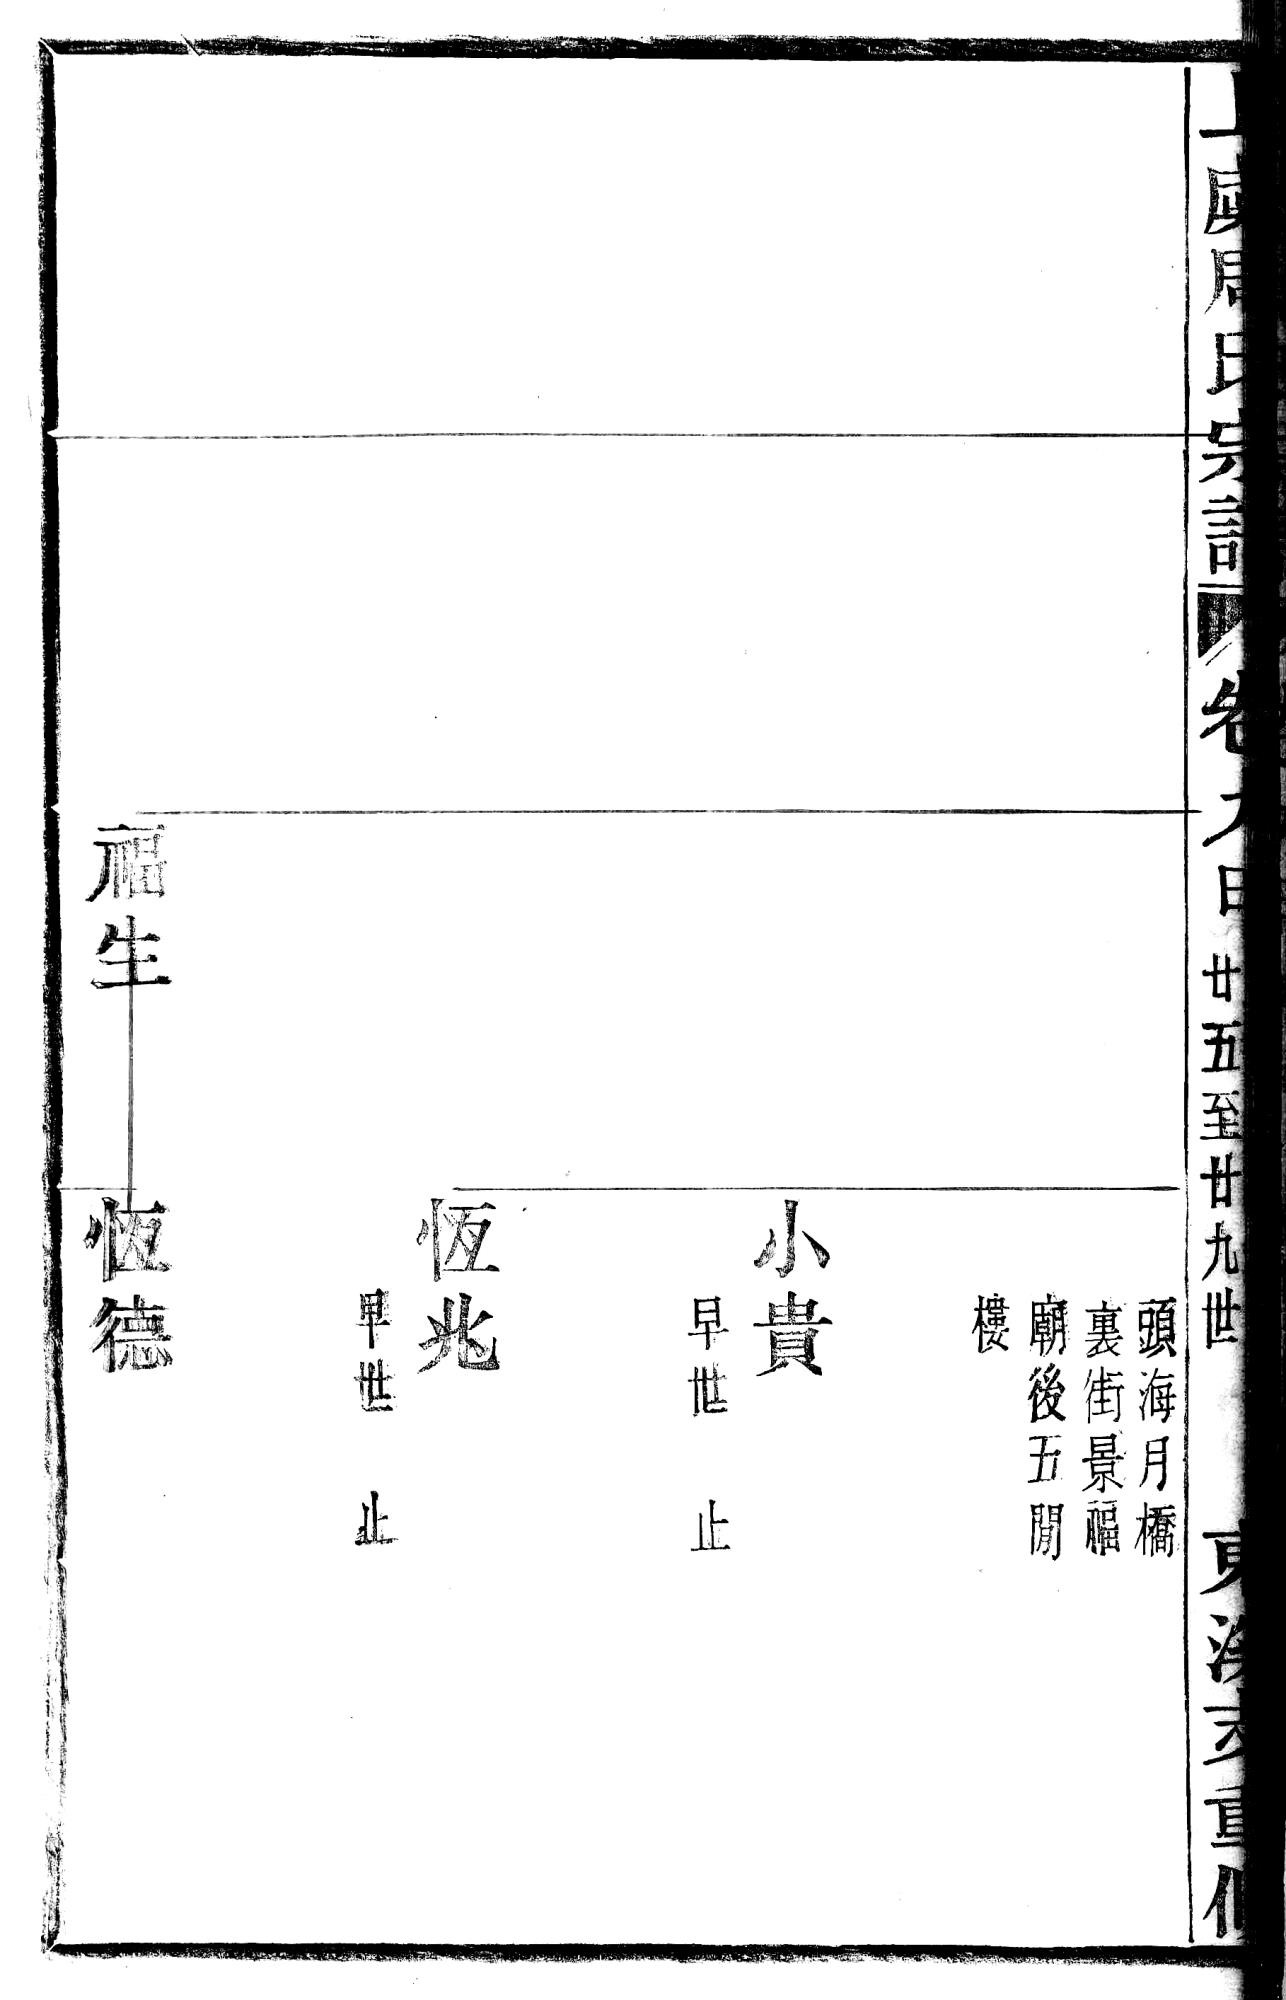 上虞周氏宗譜
卷
廿五至廿九世
支重修
頭海月橋
裏街景福
廟後五間
樓
小貴
早世 止
恆兆
早世 止
福生
恆德